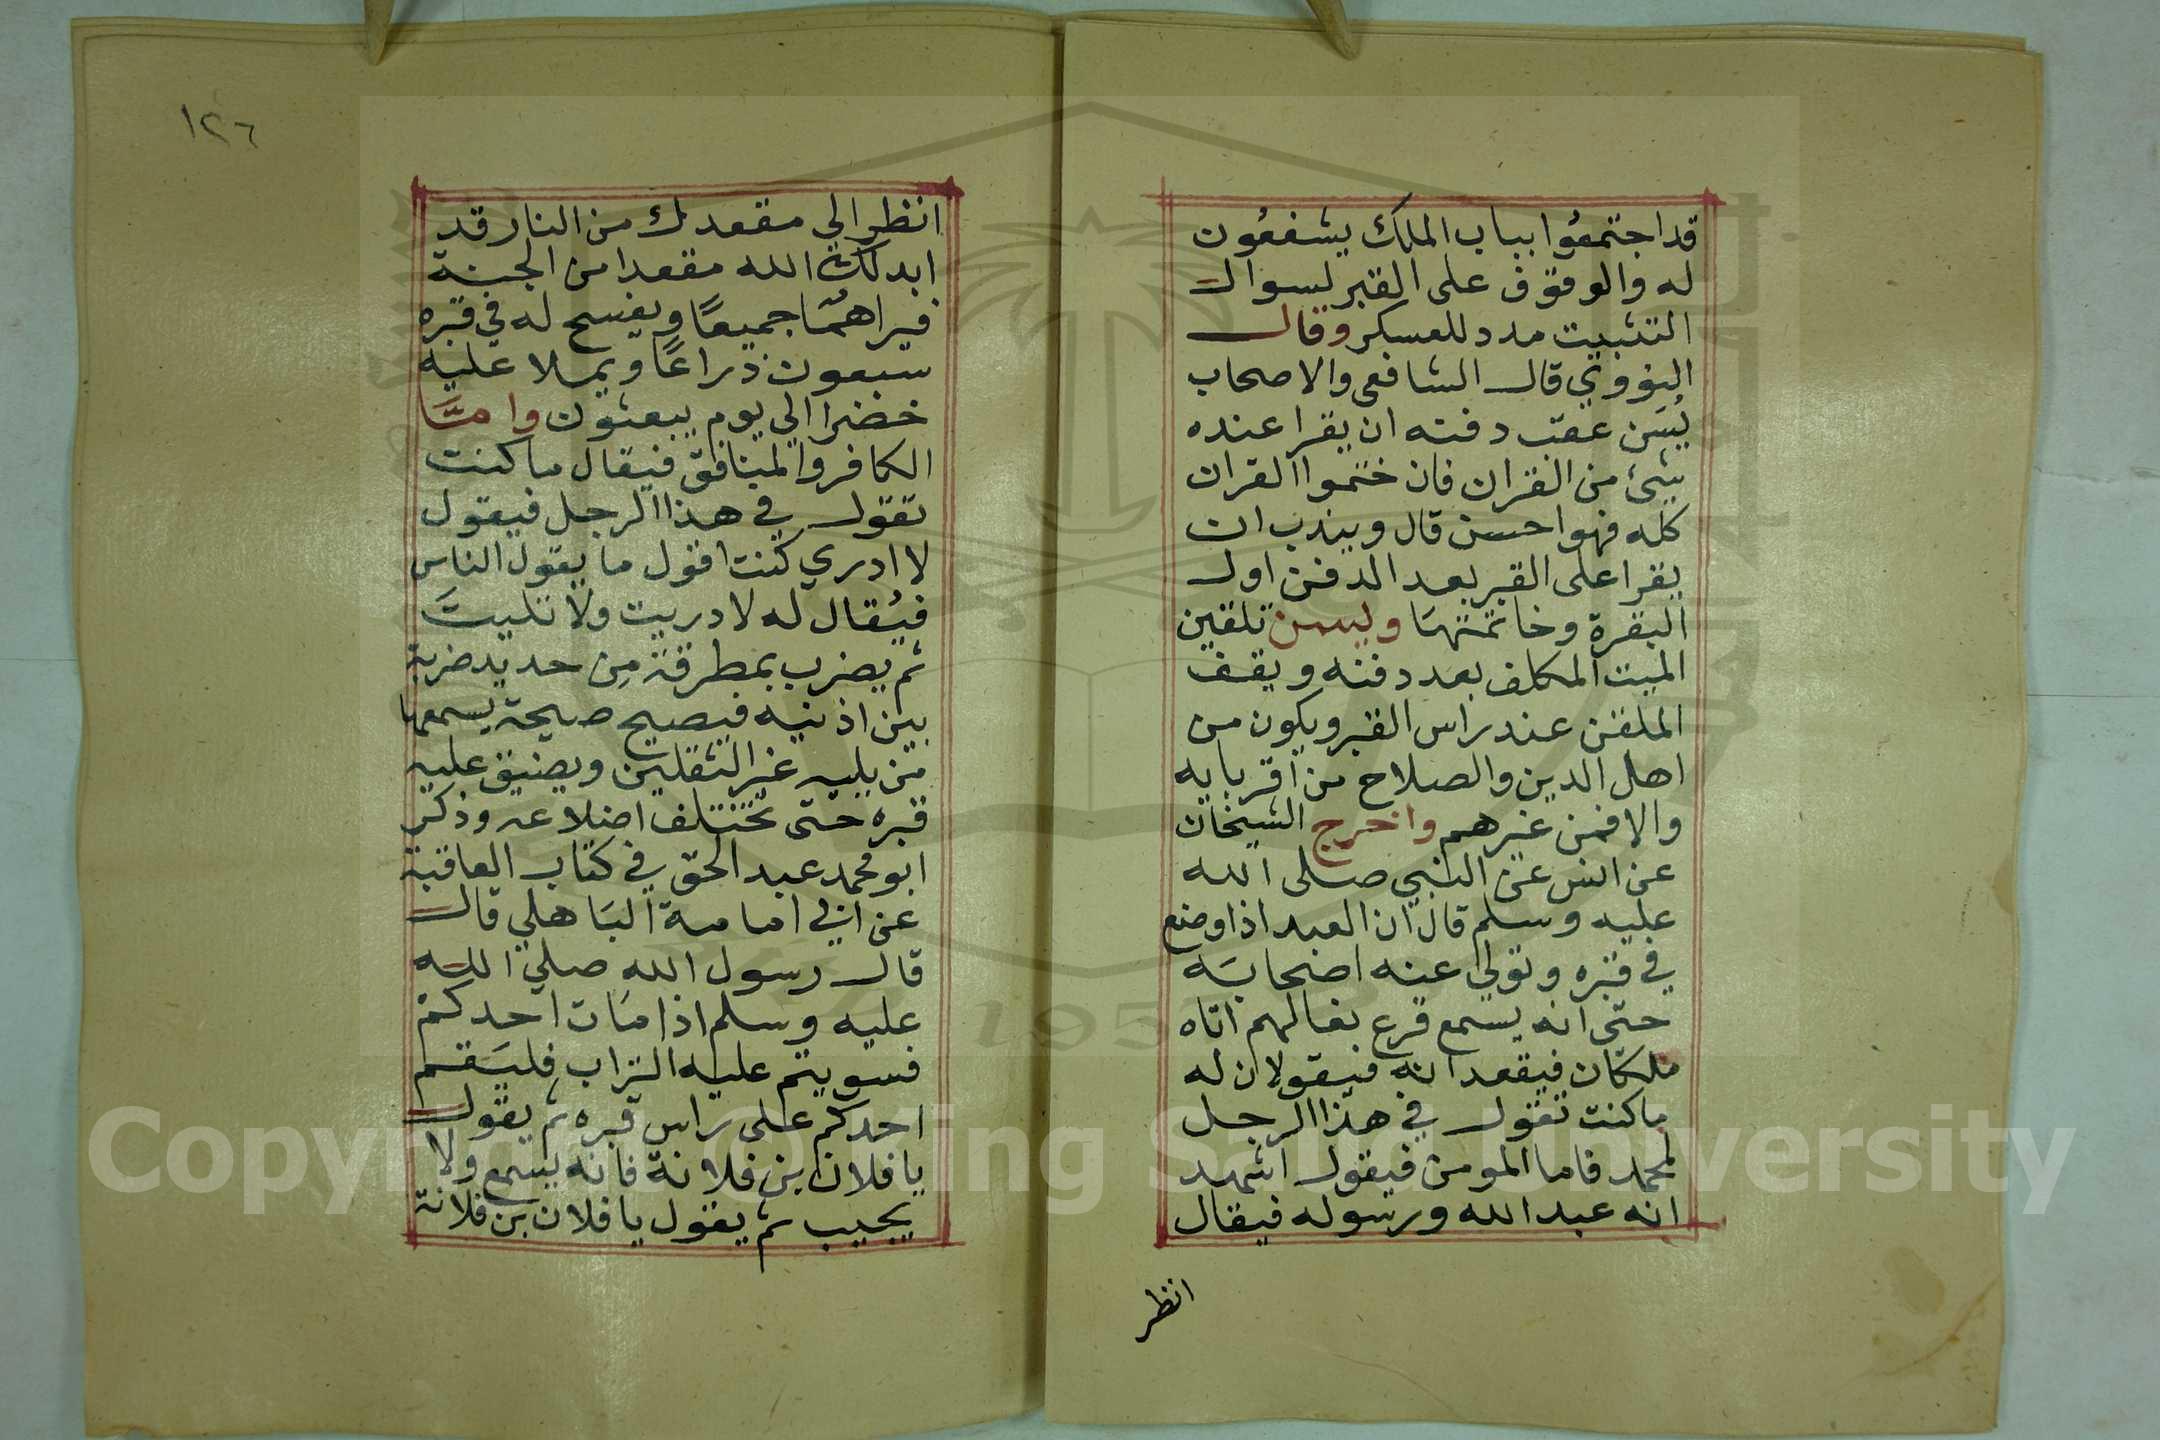 قد اجتمعوا بباب الملك يشفعون
له والوقوف على القبر لسوال
التثبيت مدد للعسكر وقال
النووي قال الشافعى والاصحاب
يُسَن عقب دفنه ان يقرا عنده
شئ من القران فان ختموا القران
كله فهو احسن قال ويندب ان
يقرا على القبر بعد الدفن اول
البقرة وخاتمتها ويسن تلقين
الميت المكلف بعد دفنه ويقف
الملقن عند راس القبر ويكون من
اهل الدين والصلاح من اقربايه
والا فمن غيرهم واخرج الشيخان
عن انس عن النبي صلى الله
عليه وسلم قال ان العبد اذا وضع
في قبره وتولى عنه اصحابه
حتى انه يسمع قرع نعالهم اتاه
ملكان فيقعدانه فيقولان له
ما كنت تقول في هذا الرجل
لمحمد فاما المومن فيقول اشهد
انه عبد الله ورسوله فيقال
انظر
١٢٦
انظر الي مقعدك من النار قد
ابدلك الله مقعدا من الجنة
فيراهما جميعًا ويفسح له في قبره
سبعون ذراعًا ويملا عليه
خضرا الي يوم يبعثون وامّا
الكافر والمنافق فيقال ما كنت
تقول في هذا الرجل فيقول
لا ادري كنت اقول ما يقول الناس
فيُقال له لا دريت ولا تليتَ
ثم يضرب بمطرقة مِن حديد ضربة
بين اذنيه فيصيح صيحة يسمعها
من يليه غير الثقلين ويضيق عليه
قبره حتى تختلف اضلاعه وذكر
ابو محمد عبد الحق في كتاب العاقبة
عن ابي امامة الباهلي قال
قال رسول الله صلي الله
عليه وسلم اذا مات احدكم
فسويتم عليه التراب فليقم
احدكم على راس قبره ثم يقول
يا فلان بن فلانة فانه يسمع ولا
يجيب ثم يقول يا فلان بن فلانة
Copyright © King Saud University
195